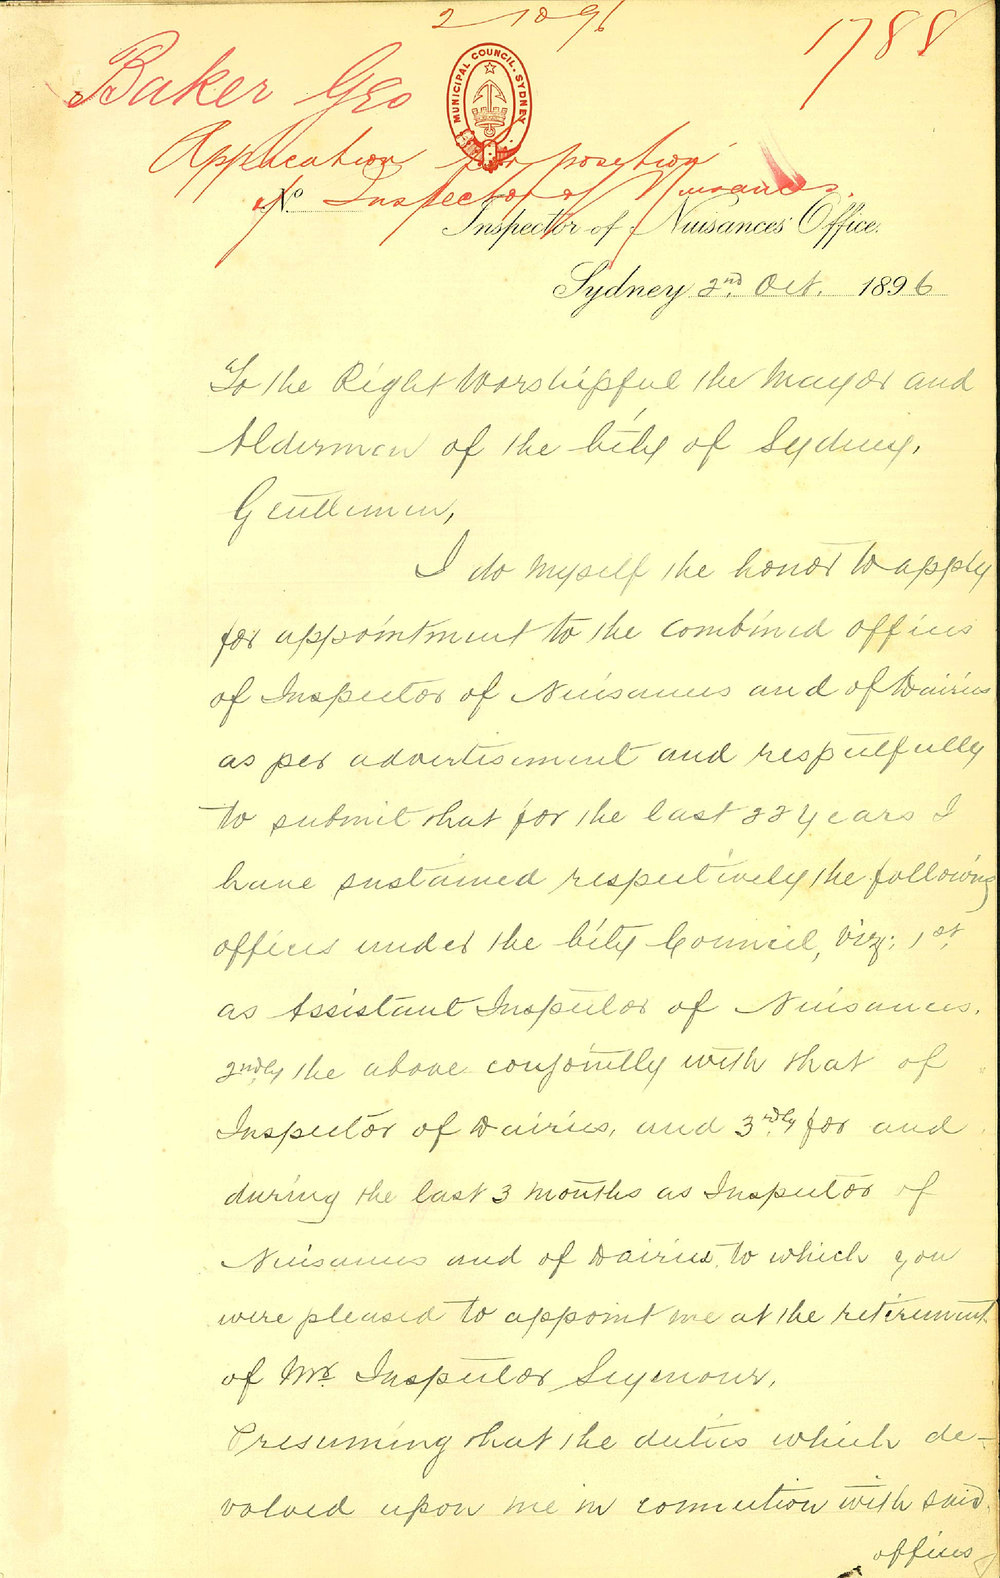 2 10 96
1788
Baker Geo
MUNICIPAL COUNCIL. SYDNEY
Application for position
of Inspector of Nuisances.
No
Inspector of Nuisances' Office.
Sydney 2nd. Oct. 1896
To the Right Worshipful the Mayor and
Aldermen of the City of Sydney,
Gentlemen,
I do myself the honor to apply
for appointment to the combined offices
of Inspector of Nuisances and of Dairies
as per advertisement and respectfully
to submit that for the last 22 years I
have sustained respectively the following
offices under the City Council, Viz: 1st
as Assistant Inspector of Nuisances.
2ndly the above conjointly with that of
Inspector of Dairies, and 3rdly for and
during the last 3 months as Inspector of
Nuisances and of Dairies, to which you
were pleased to appoint me at the retirement
of Mr. Inspector Seymour.
Presuming that the duties which de-
volved upon me in connection with said
offices